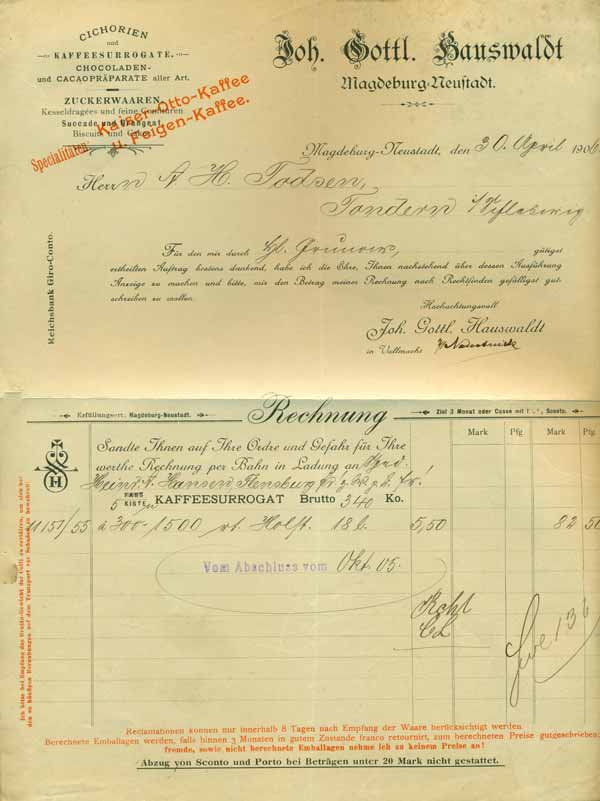 CICHORIEN
und
KAFFEESURROGATE.
CHOCOLADEN-
und CACAOPRÄPARATE aller Art.
ZUCKERWAAREN
Kesseldragées und feine Confitüren
Succade und Orangeat
Biscuits und
Specialitäten: Kaiser-Otto-Kaffee
u. Feigen-Kaffee.
Joh. Gottl. Hauswaldt
Magdeburg-Neustadt.
Magdeburg-Neustadt, den 30 April 1906
Herrn A. H. Todsen,
Tondern i/Schleswig
Reichsbank Giro-Conto.
Für den mir durch Hl. Grunow, gütigst
ertheilten Auftrag bestens dankend, habe ich die Ehre, Ihnen nachstehend über dessen Ausführung
Anzeige zu machen und bitte, mir den Betrag meiner Rechnung nach Rechtfinden gefälligst gut-
schreiben zu wollen.
Hochachtungsvoll
Joh. Gottl. Hauswaldt
in Vollmacht
Erfüllungsort: Magdeburg-Neustadt.
Rechnung
Ziel 3 Monat oder Casse mit Sconto.
Mark Pfg Mark Pfg
H
Sandte Ihnen auf Ihre Ordre und Gefahr für Ihre
werthe Rechnung per Bahn in Ladung an Sped.
Heinr. A. Hansen Flensburg
5 KISTEN KAFFEESURROGAT Brutto 340 Ko.
11151/55 à 300 - 1500 rt. Holst. 18l. 5,50 82 50
Vom Abschluss vom Okt. 05.
Ich bitte bei Empfang das Brutto-Gewicht der Colli zu ermitteln, um sich bei
den so häufigen Beraubungen auf dem Transport vor Schaden zu bewahren!
Reclamationen können nur innerhalb 8 Tagen nach Empfang der Waare berücksichtigt werden.
Berechnete Emballagen werden, falls binnen 3 Monaten in gutem Zustande franco retournirt, zum berechneten Preise gutgeschrieben;
fremde, sowie nicht berechnete Emballagen nehme ich zu keinem Preise an!
Abzug von Sconto und Porto bei Beträgen unter 20 Mark nicht gestattet.